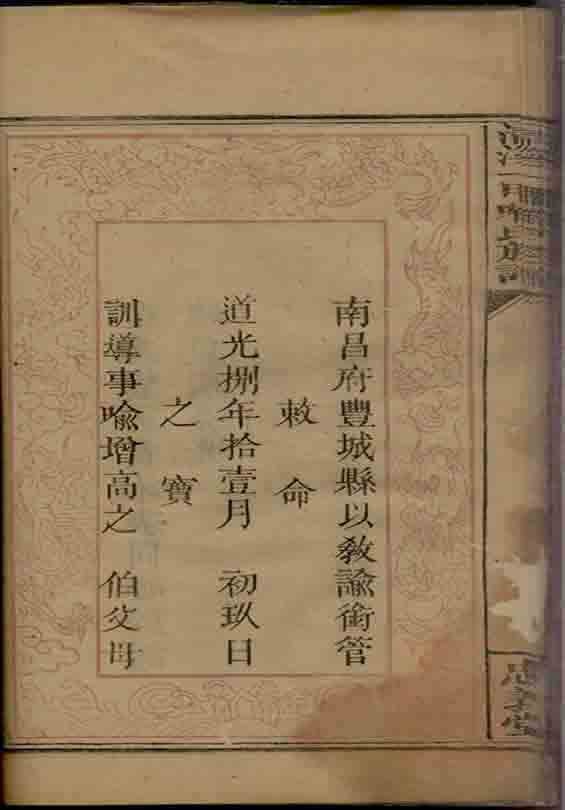 南昌府豐城縣以教諭銜管
敕命
道光捌年拾壹月 初玖日
之寶
訓導事喻增高之 伯父母